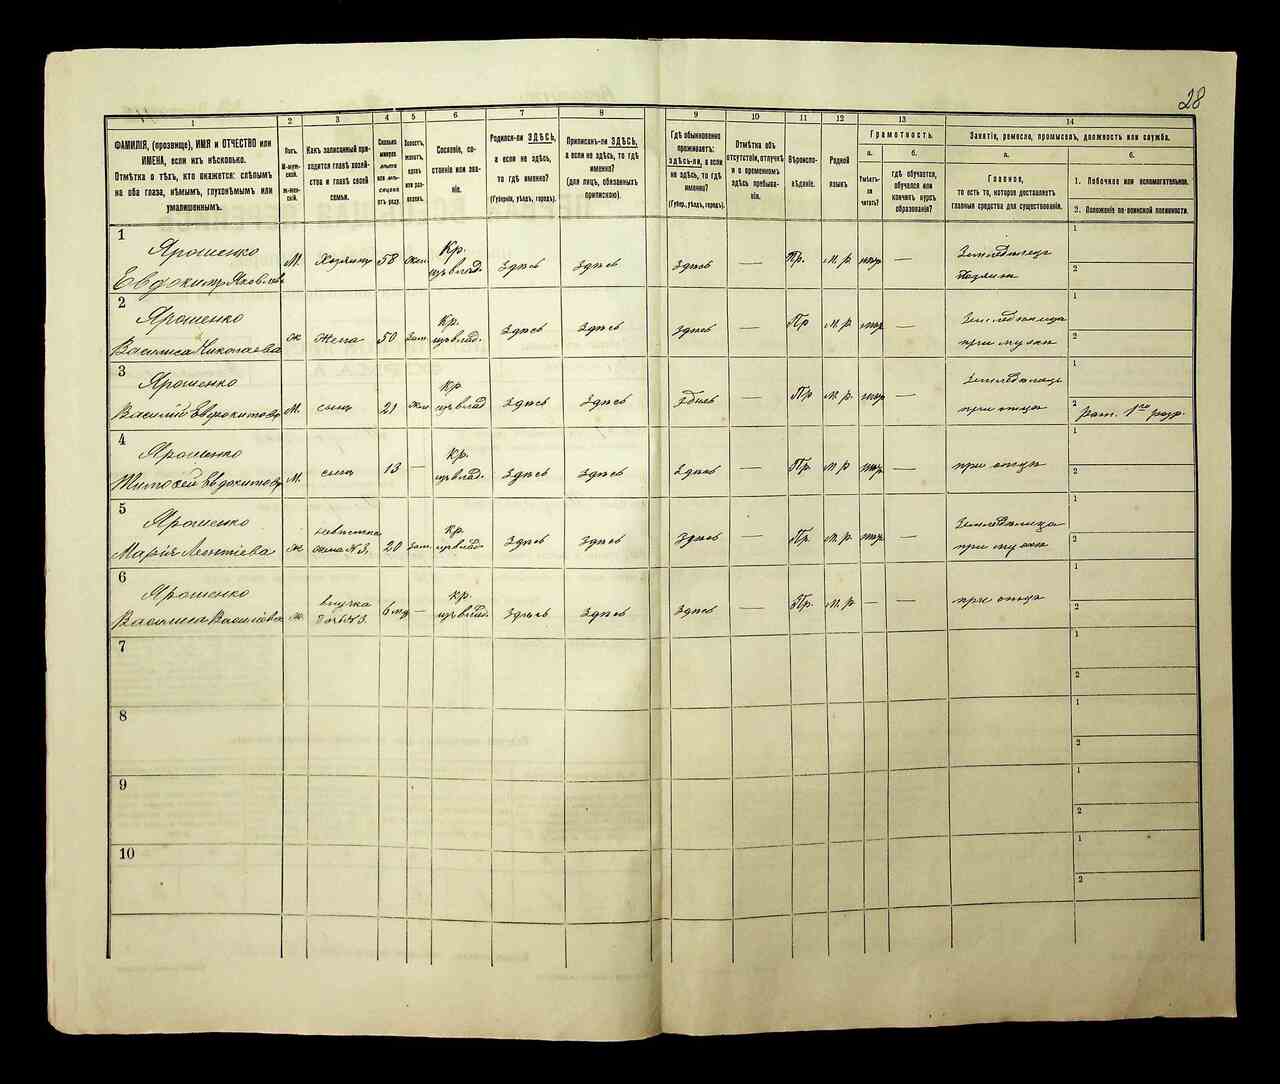 28
1 2 3 4 5 6 7 8 9 10 11 12 13 14
ФАМИЛІЯ, (прозвище), ИМЯ и ОТЧЕСТВО или
ИМЕНА, если ихъ нѣсколько.
Отмѣтка о тѣхъ, кто окажется: слѣпымъ
на оба глаза, нѣмымъ, глухонѣмымъ или
умалишеннымъ.
Полъ.
М-муж-
ской.
ж-жен-
скій.
Какъ записанный при-
ходится главѣ хозяй-
ства и главѣ своей
семьи.
Сколько
минуло
лѣтъ
или мѣ-
сяцевъ
отъ роду.
Холостъ,
женатъ,
вдовъ
или раз-
веденъ.
Сословіе, со-
стояніе или зва-
ніе.
Родился-ли ЗДѢСЬ,
а если не здѣсь,
то гдѣ именно?
(Губернія, уѣздъ, городъ).
Приписанъ-ли ЗДѢСЬ,
а если не здѣсь, то гдѣ
именно?
(для лицъ, обязанныхъ
припискою).
Гдѣ обыкновенно
проживаетъ:
здѣсь-ли, а если
не здѣсь, то гдѣ
именно?
(Губер., уѣздъ, городъ).
Отмѣтка объ
отсутствіи, отлучкѣ
и о временномъ
здѣсь пребыва-
ніи.
Вѣроиспо-
вѣданіе.
Родной
языкъ.
Грамотность.
а. б.
Умѣетъ-
ли
читать?
гдѣ обучается,
обучался или
кончилъ курсъ
образованія?
Занятіе, ремесло, промыселъ, должность или служба.
а. б.
Главное,
то есть то, которое доставляетъ
главныя средства для существованія.
1. Побочное или вспомогательное.
2. Положеніе по воинской повинности.
1
Ярошенко
Евдокимъ Яковлевъ
М. Хозяинъ 58 жен. Кр. изъ влад. Здѣсь Здѣсь Здѣсь — Пр. м. р. — Земледѣлецъ
хозяинъ
1
2
2
Ярошенко
Василиса Николаева
ж жена 50 зам. Кр. изъ влад. Здѣсь Здѣсь здѣсь — Пр м. р. — Земледѣлица
при мужѣ
1
2
3
Ярошенко
Василій Евдокимовъ
М. сынъ 21 жен Кр изъ влад Здѣсь Здѣсь здѣсь — Пр м. р. — Земледѣлецъ
при отцѣ
1
2 рат. 1го разр.
4
Ярошенко
Тимофей Евдокимовъ
М. сынъ 13 — Кр. изъ влад. Здѣсь Здѣсь Здѣсь — Пр. м р — при отцѣ
1
2
5
Ярошенко
Марія Леонтіева
ж невѣстка
жена №3. 20 зам. Кр изъ влад. Здѣсь Здѣсь Здѣсь — Пр. м. р. — Земледѣлица
при мужѣ
1
2
6
Ярошенко
Василиса Васильева
ж. внучка
дочь №3. — Кр. изъ влад. Здѣсь Здѣсь Здѣсь — Пр. м. р. — — при отцѣ
1
2
7
1
2
8
1
2
9
1
2
10
1
2